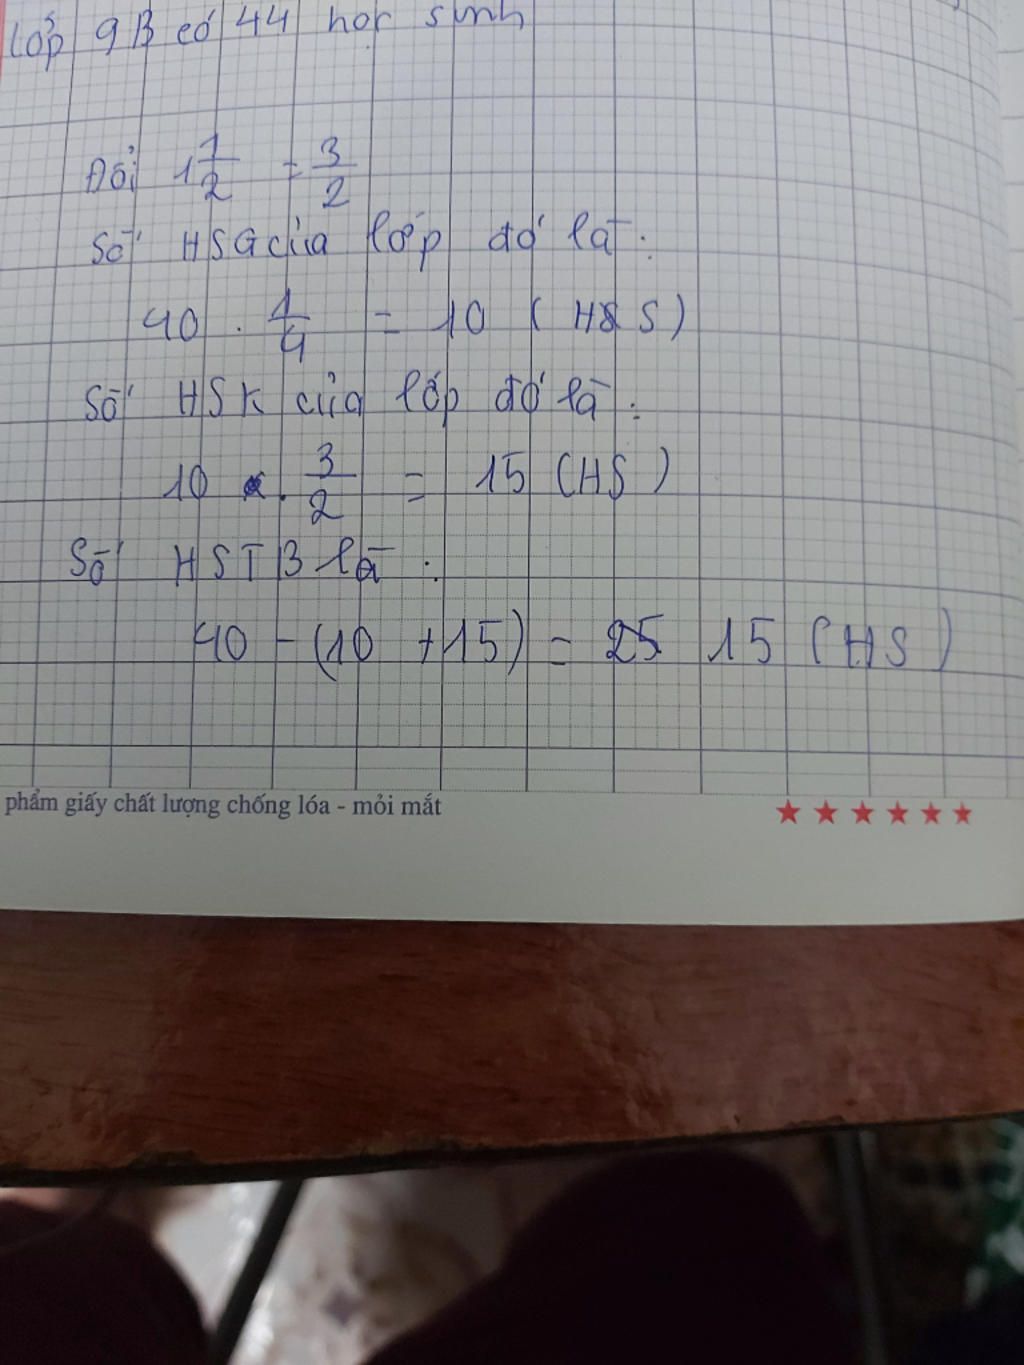 Lớp 9B có 44 học sinh
Đổi 1 1/2 = 3/2
Số HSG của lớp đó là:
40 . 1/4 = 10 (HS)
Số HSK của lớp đó là:
10 . 3/2 = 15 (HS)
Số HSTB là:
40 - (10 + 15) = 15 (HS)
phẩm giấy chất lượng chống lóa - mỏi mắt